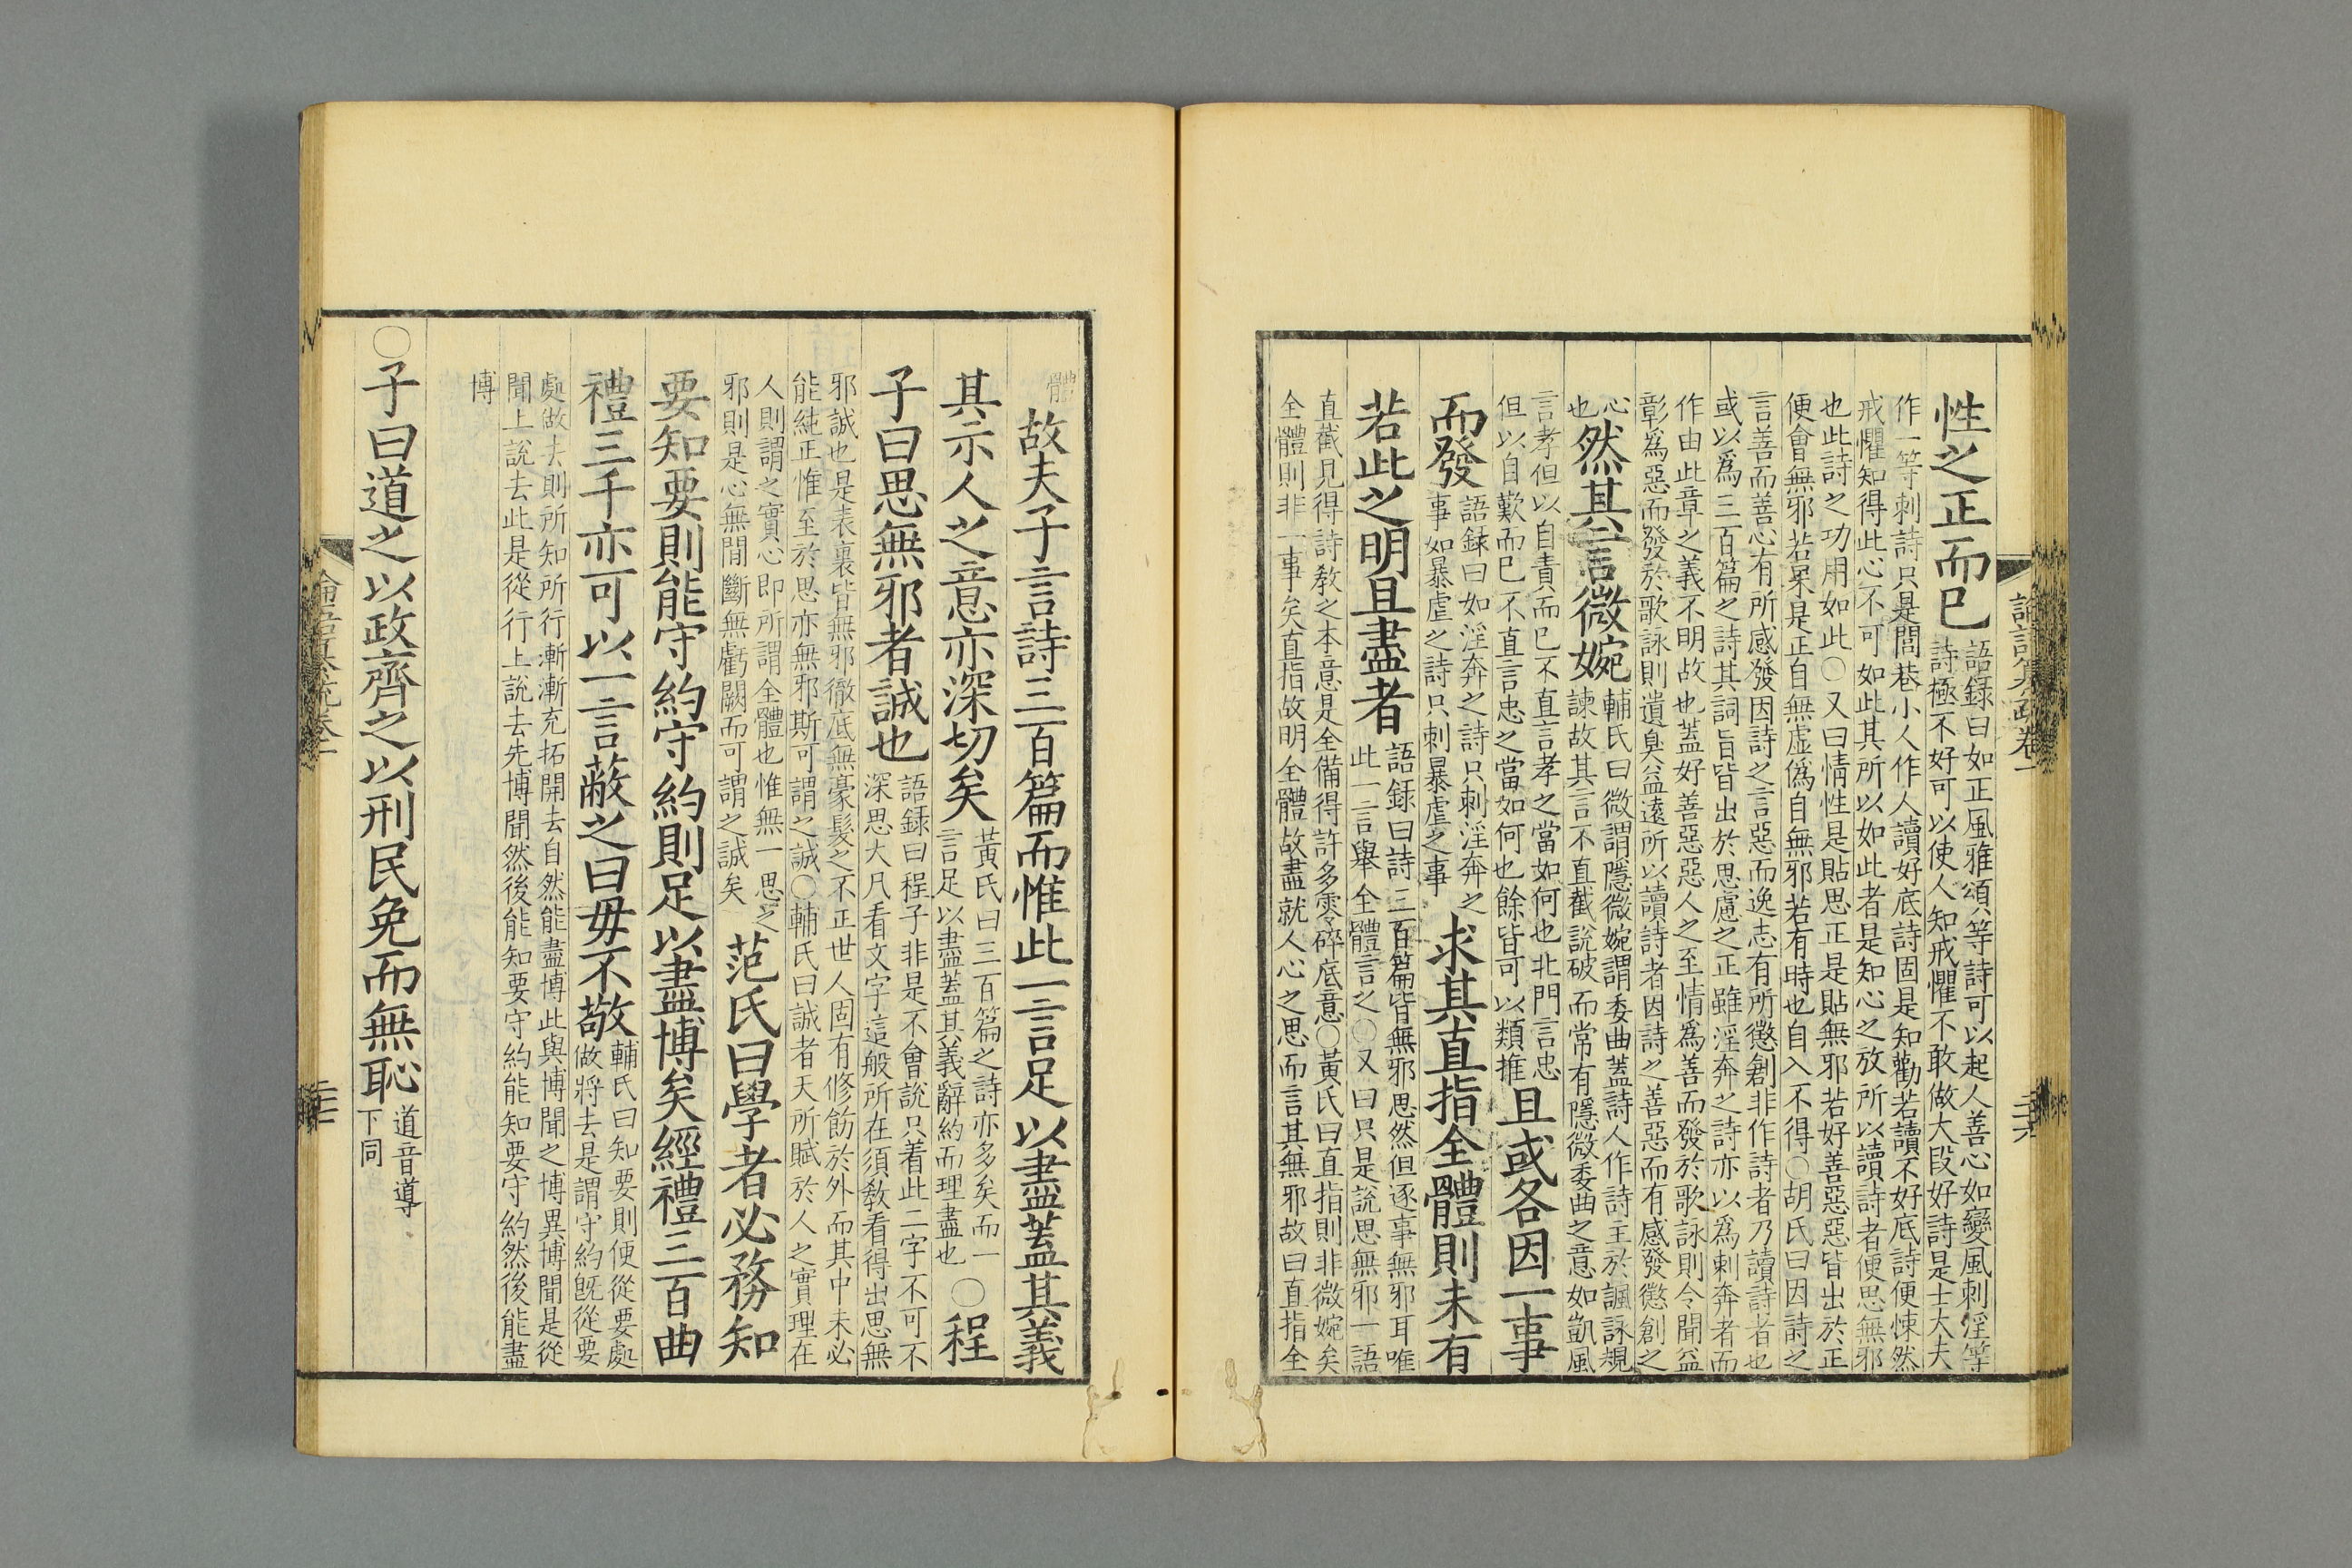 性之正而已
語録曰如正風雅頌等詩可以起人善心如變風刺淫等
詩極不好可以使人知戒懼不敢做大段好詩是士大夫
作一等刺詩只是閭巷小人作人讀好底詩固是知勸若讀不好底詩便悚然
戒懼知得此心不可如此其所以如此者是知心之放所以讀詩者便思無邪
也此詩之功用如此○又曰情性是貼思正是貼無邪若好善惡惡皆出於正
便會無邪若果是正自無虛僞自無邪若有時也自入不得○胡氏曰因詩之
言善而善心有所感發因詩之言惡而逸志有所懲創非作詩者乃讀詩者也
或以爲三百篇之詩其詞旨皆出於思慮之正雖淫奔之詩亦以爲刺奔者而
作由此章之義不明故也蓋好善惡惡人之至情爲善而發於歌詠則令聞益
彰爲惡而發於歌詠則遺臭益遠所以讀詩者因詩之善惡而有感發懲創之
心
也
然其言微婉
輔氏曰微謂隱微婉謂委曲蓋詩人作詩主於諷詠規
諫故其言不直截說破而常有隱微委曲之意如凱風
言孝但以自責而已不直言孝之當如何也北門言忠
但以自歎而已不直言忠之當如何也餘皆可以類推
且或各因一事
而發
語録曰如淫奔之詩只刺淫奔之
事如暴虐之詩只刺暴虐之事
求其直指全體則未有
若此之明且盡者
語録曰詩三百篇皆無邪思然但逐事無邪耳唯
此一言舉全體言之○又曰只是說思無邪一語
直截見得詩敎之本意是全備得許多零碎底意○黃氏曰直指則非微婉矣
全體則非一事矣直指故明全體故盡就人心之思而言其無邪故曰直指全
體
故夫子言詩三百篇而惟此一言足以盡蓋其義
其示人之意亦深切矣
黃氏曰三百篇之詩亦多矣而一
言足以盡蓋其義辭約而理盡也
○程
子曰思無邪者誠也
語録曰程子非是不會說只着此二字不可不
深思大凡看文字這般所在須敎看得出思無
邪誠也是表裏皆無邪徹底無豪髮之不正世人固有修飭於外而其中未必
能純正惟至於思亦無邪斯可謂之誠○輔氏曰誠者天所賦於人之實理在
人則謂之實心即所謂全體也惟無一思之
邪則是心無間斷無虧闕而可謂之誠矣
范氏曰學者必務知
要知要則能守約守約則足以盡博矣經禮三百曲
禮三千亦可以一言蔽之曰毋不敬
輔氏曰知要則便從要處
做將去是謂守約旣從要
處做去則所知所行漸漸充拓開去自然能盡博此與博聞之博異博聞是從
聞上說去此是從行上說去先博聞然後能知要守約能知要守約然後能盡
博
○子曰道之以政齊之以刑民免而無恥
道音導
下同